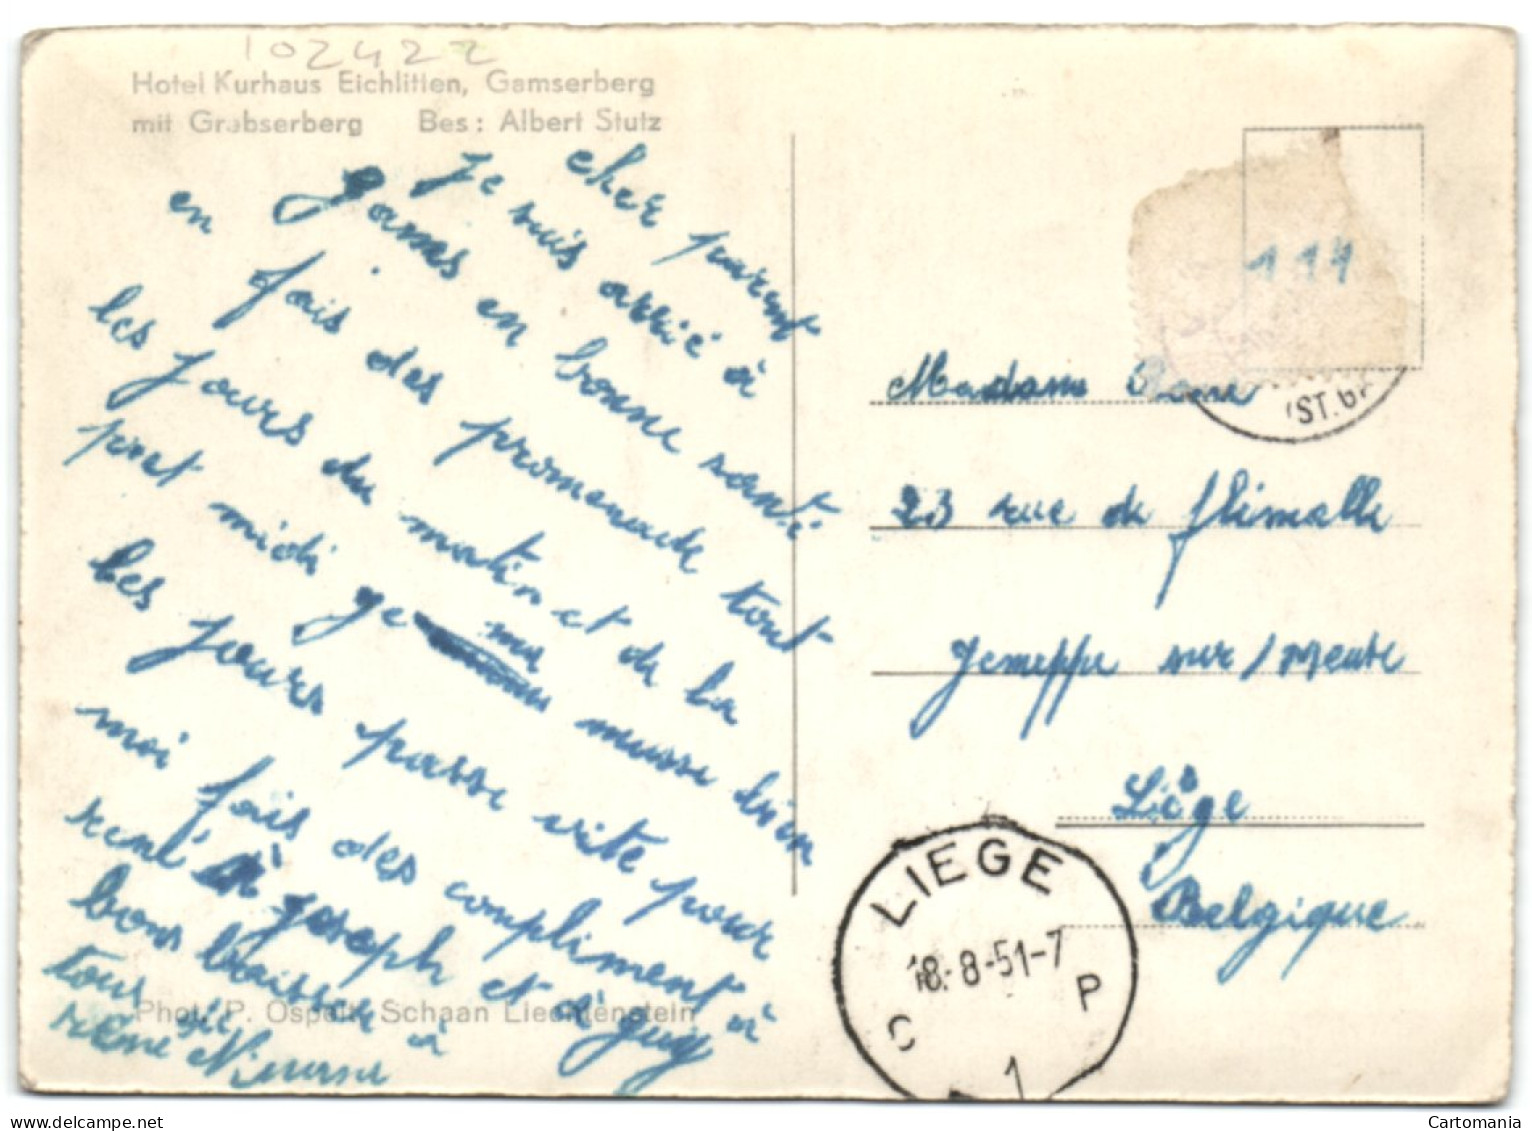 102422
Hotel Kurhaus Eichlitten, Gamserberg
mit Grabserberg Bes: Albert Stutz
cher parent
je suis arrié à
gams en bonne santé
en fais des promenade tout
les jours du matin et de la
pret midi je ma musse bien
les jours passe vite pour
moi fais des compliment à
rené à joseph et à guy
bons baisse à
tous
Phot. P. Ospelt, Schaan Liechtenstein
114
Madame
23 rue de flémalle
Jemeppe sur / meuse
Liège
Belgique
(ST. GA
LIEGE
18-8-51-7
C P
1
Cartomania